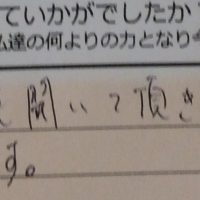 ていかがでしたか
達の何よりの力となり
聞いて頂き
す。